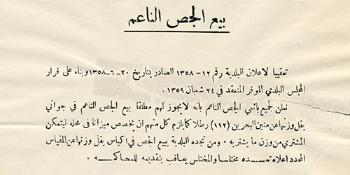 بيع الجص الناعم
تعقيبا لاعلان البلدية رقم ١٢-١٣٥٨ الصادر بتاريخ ٢٠-٦-١٣٥٨ وبناء على قرار
المجلس البلدي الموقر المنعقد في ٢٤ شعبان ١٣٥٩
نعلن لجميع بائعي الجص الناعم بأنه لا يجوز لهم مطلقا بيع الجص الناعم في جواني
يقل وزنها عن منين البحرين (١١٢) رطلا كما يلزم كل منهم ان يخصص ميزانا في محله ليتمكن
المشتري من وزن ما يشتريه . ومن تجده البلدية يبيع الجص في اكياس يقل وزنها عن المقياس
المحدد اعلاه تعده مختلسا والمختلس يعاقب بتقديمه للمحاكمة .